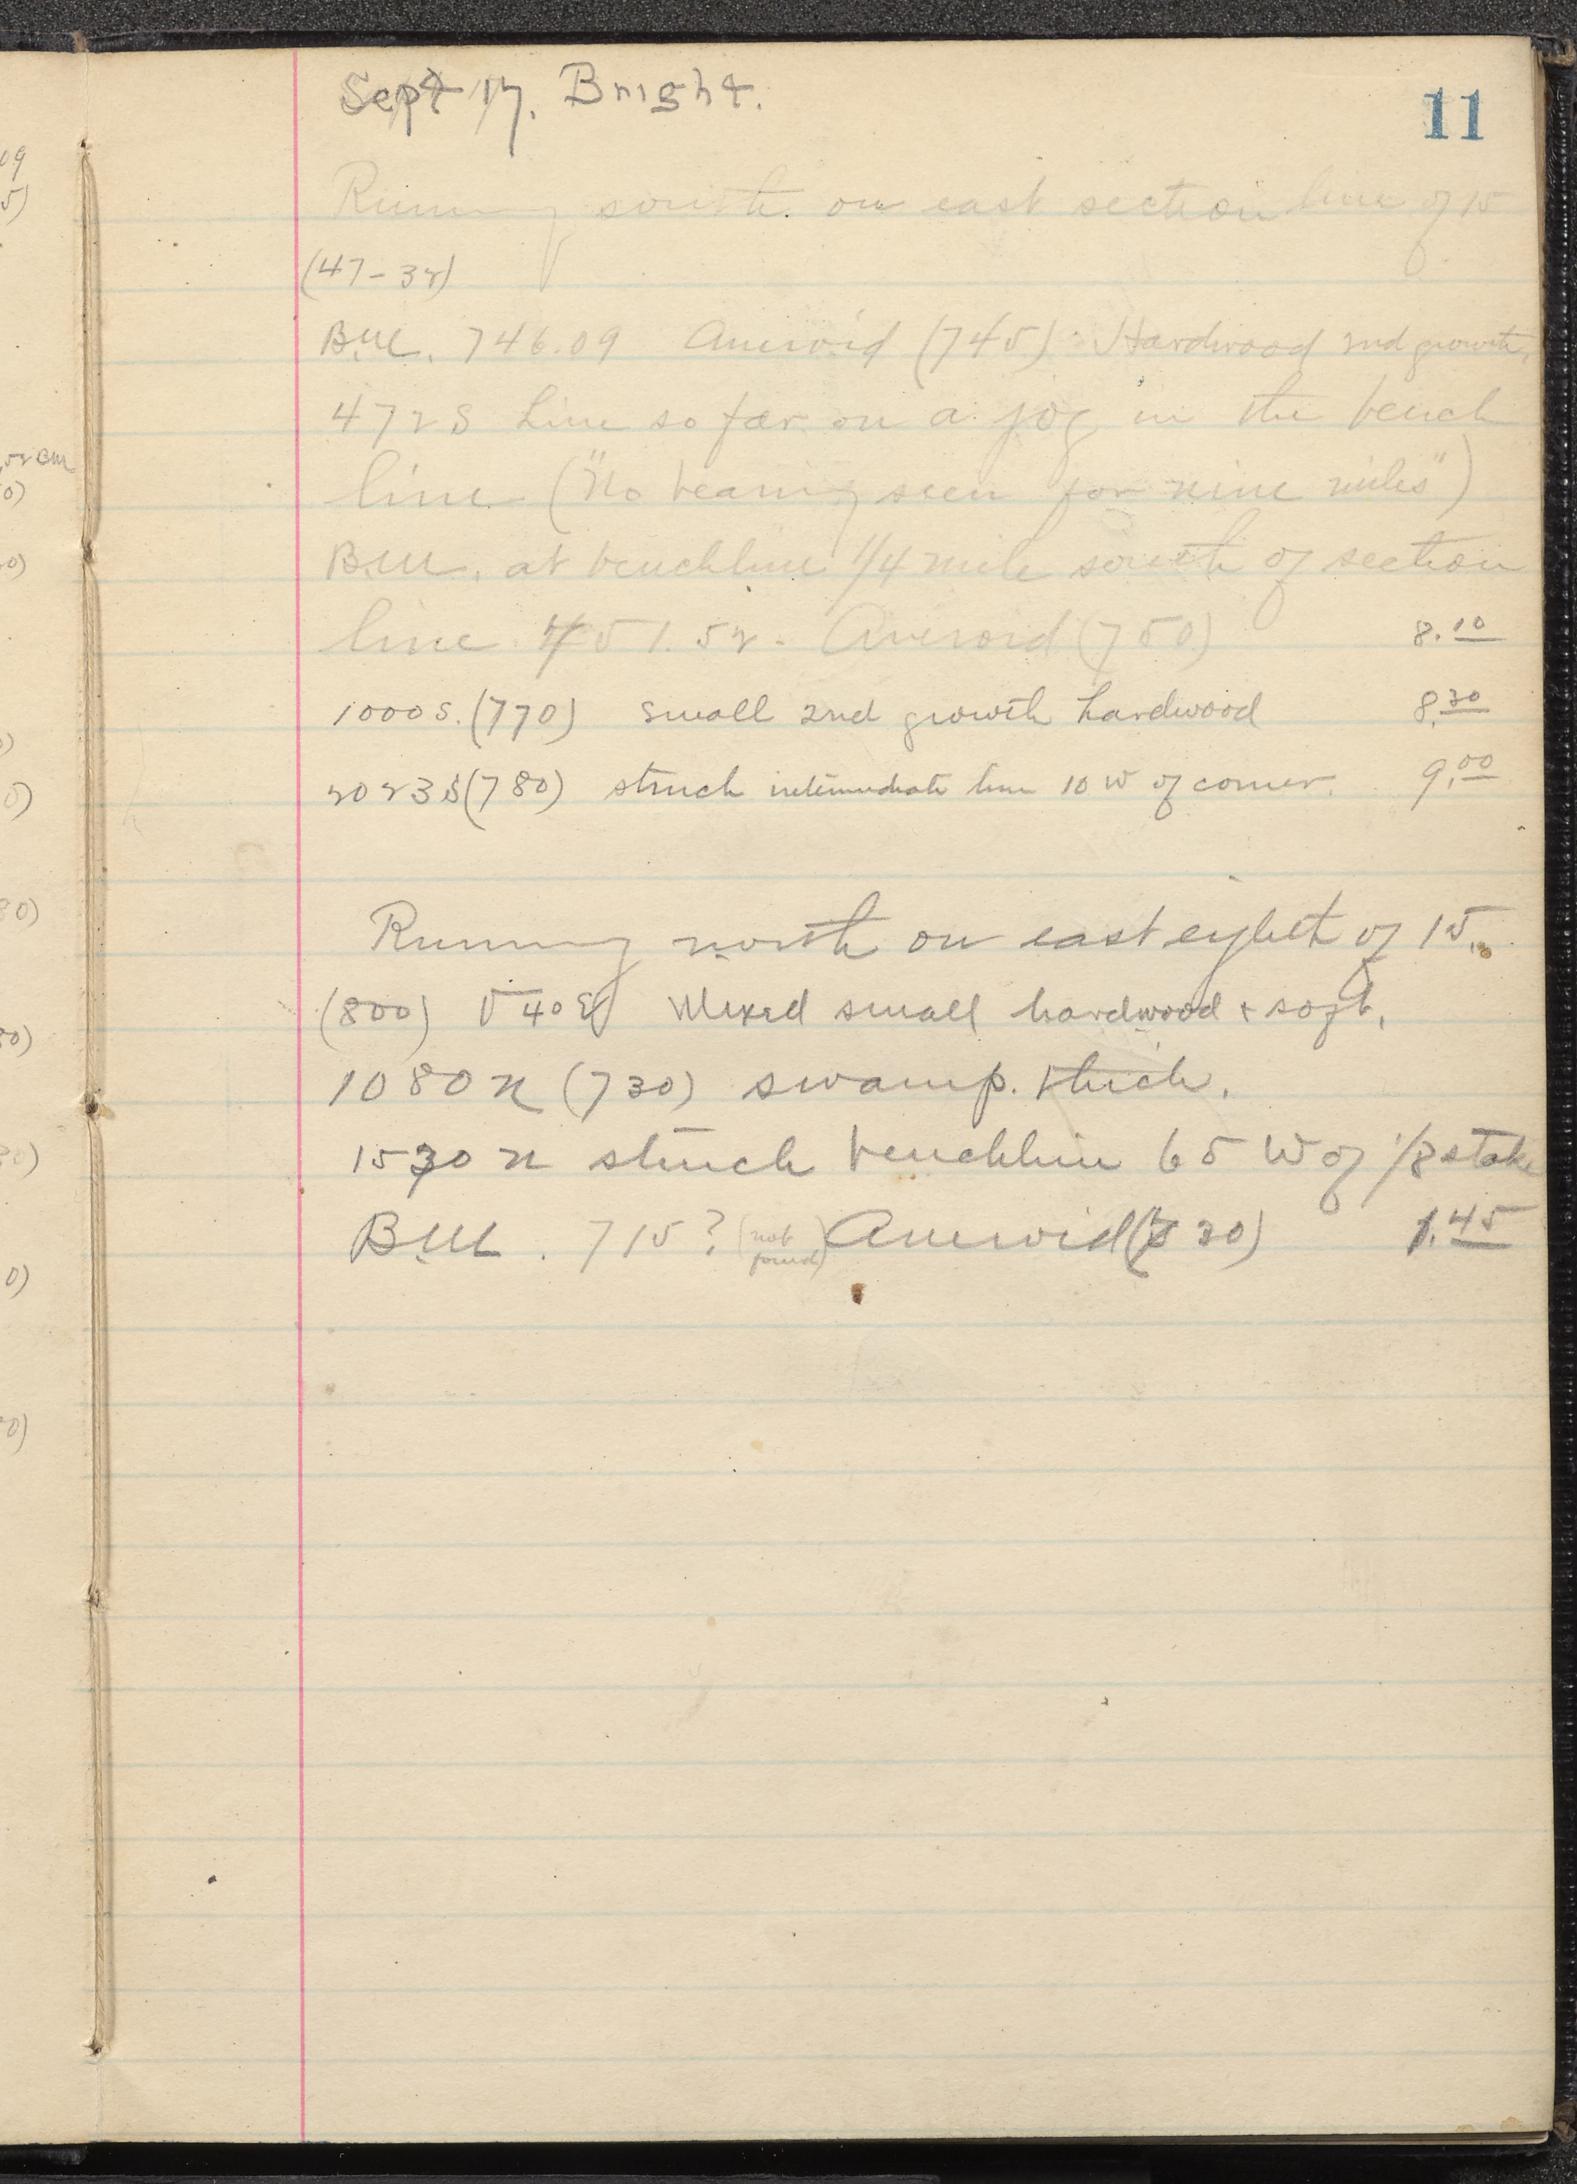 11
Sept 17. Bright.
Running south on east section line of 15
(47-32)
B.M. 746.09 Aneroid (745) Hardwood 2nd growth.
472 S Line so far on a jog in the bench
line ("No bearing seen for nine miles")
B.M. at benchline 1/4 mile south of section
line 751.52 - Aneroid (750) 8.10
1000 S. (770) small 2nd growth hardwood 8.30
2023 S (780) struck intermediate line 10 W of corner. 9.00
Running north on east eighth of 15.
(800) V 40 E Mixed small hardwood + soft.
1080 N (730) swamp. thick.
1530 N struck benchline 65 W of 1/8 stake
B.M. 715? (not found) Aneroid (730) 1.45